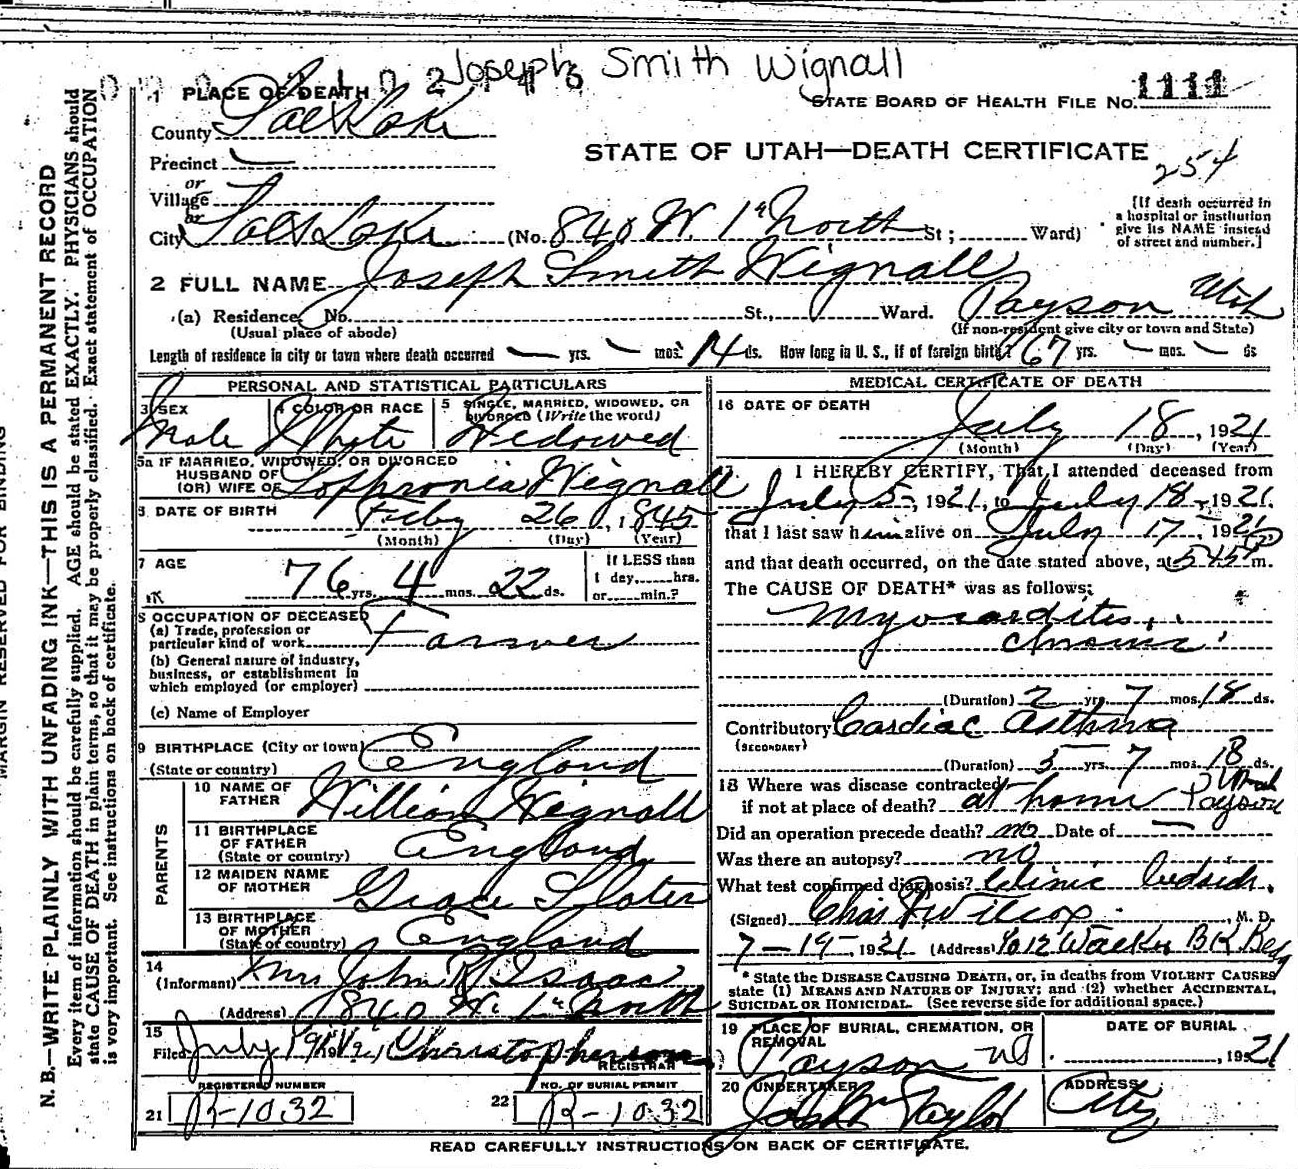 Joseph Smith Wignall
1 PLACE OF DEATH
STATE BOARD OF HEALTH FILE No. 1111
County Salt Lake
STATE OF UTAH—DEATH CERTIFICATE
254
Precinct
or
Village
or
City Salt Lake (No. 840 W. 1st North St; Ward)
[If death occurred in
a hospital or institution
give its NAME instead
of street and number.]
2 FULL NAME Joseph Smith Wignall
(a) Residence, No. St., Ward. Payson Utah
(Usual place of abode) (If non-resident give city or town and State)
Length of residence in city or town where death occurred — yrs. — mos. 14 ds. How long in U. S., if of foreign birth? 67 yrs. — mos. — ds
PERSONAL AND STATISTICAL PARTICULARS
3 SEX
Male
4 COLOR OR RACE
White
5 SINGLE, MARRIED, WIDOWED, OR
DIVORCED (Write the word)
Widowed
5a IF MARRIED, WIDOWED, OR DIVORCED
HUSBAND OF
(OR) WIFE OF Sophronia Wignall
DATE OF BIRTH
Feby 26, 1845
(Month) (Day) (Year)
7 AGE
76 yrs. 4 mos. 22 ds.
If LESS than
1 day, hrs.
or min.?
8 OCCUPATION OF DECEASED
(a) Trade, profession or
particular kind of work Farmer
(b) General nature of industry,
business, or establishment in
which employed (or employer)
(c) Name of Employer
9 BIRTHPLACE (City or town)
(State or country) England
PARENTS
10 NAME OF
FATHER William Wignall
11 BIRTHPLACE
OF FATHER
(State or country) England
12 MAIDEN NAME
OF MOTHER Grace Slater
13 BIRTHPLACE
OF MOTHER
(State or country) England
14
(Informant) Mrs John R Isaac
(Address) 840 W. 1st North
15
Filed July 19, 1921 Christopherson
REGISTRAR
REGISTERED NUMBER
21 R-1032
NO. OF BURIAL PERMIT
22 R-1032
MEDICAL CERTIFICATE OF DEATH
16 DATE OF DEATH
July 18, 1921
(Month) (Day) (Year)
17 I HEREBY CERTIFY, That I attended deceased from
July 5, 1921, to July 18, 1921.
that I last saw him alive on July 17, 1921
and that death occurred, on the date stated above, at 545 P m.
The CAUSE OF DEATH* was as follows:
Myocarditis,
chronic
(Duration) 2 yrs. 7 mos. 18 ds.
Contributory Cardiac Asthma
(SECONDARY)
(Duration) yrs. 7 mos. 18 ds.
18 Where was disease contracted
if not at place of death? at home Payson Utah
Did an operation precede death? no Date of —
Was there an autopsy? no
What test confirmed diagnosis? Clinic bedside.
(Signed) Chas F Wilcox, M. D.
7-19-, 1921 (Address) 1012 Walker BK Bldg
* State the DISEASE CAUSING DEATH, or, in deaths from VIOLENT CAUSES
state (1) MEANS AND NATURE OF INJURY; and (2) whether ACCIDENTAL,
SUICIDAL OR HOMICIDAL. (See reverse side for additional space.)
19 PLACE OF BURIAL, CREMATION, OR
REMOVAL
Payson
DATE OF BURIAL
, 1921
20 UNDERTAKER
Taylor
ADDRESS
City
READ CAREFULLY INSTRUCTIONS ON BACK OF CERTIFICATE.
MARGIN RESERVED FOR BINDING
N. B.—WRITE PLAINLY WITH UNFADING INK—THIS IS A PERMANENT RECORD
Every item of information should be carefully supplied. AGE should be stated EXACTLY. PHYSICIANS should
state CAUSE OF DEATH in plain terms, so that it may be properly classified. Exact statement of OCCUPATION
is very important. See instructions on back of certificate.